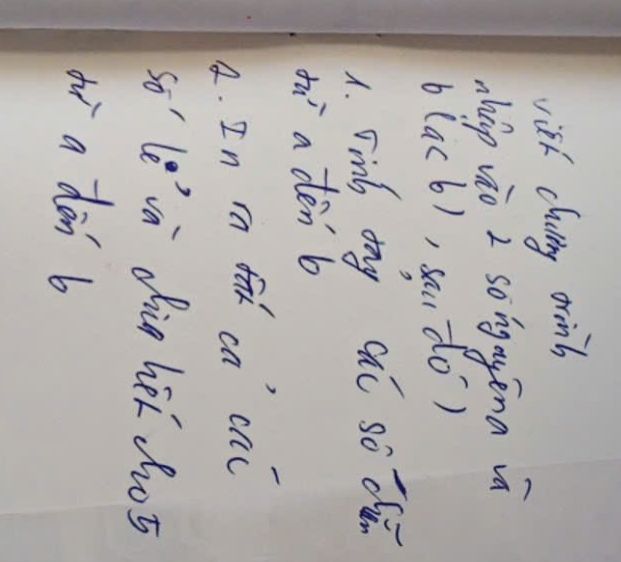 viết chương trình
nhập vào 2 số nguyên a và
b (a < b), sau đó)
1. Tính tổng các số chẵn
từ a đến b
2. In ra tất cả các
số lẻ và chia hết cho 5
từ a đến b